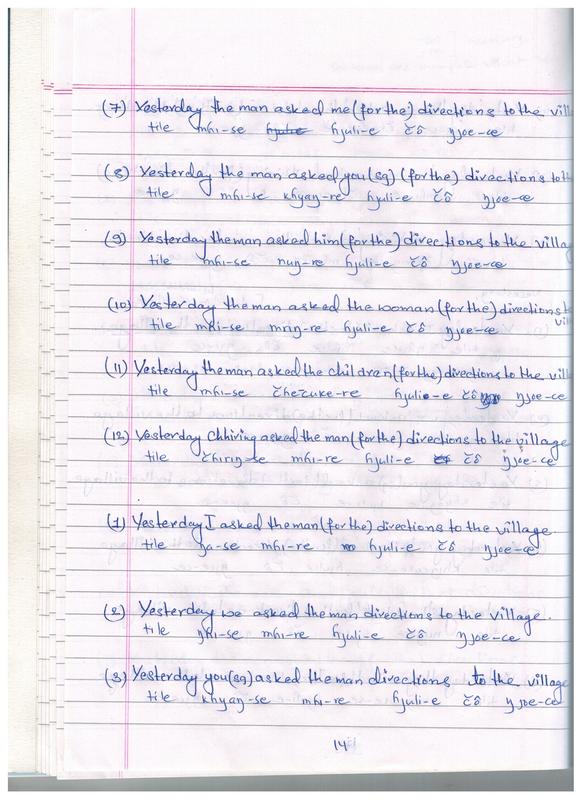 (7) Yesterday the man asked me (for the) directions to the vill
tile mɦi-se ɦjuli-e čõ ŋjoe-ce
(8) Yesterday the man asked you(sg) (for the) directions to th
tile mɦi-se khyaŋ-re ɦjuli-e čõ ŋjoe-ce
(9) Yesterday the man asked him (for the) directions to the villa
tile mɦi-se nuŋ-re ɦjuli-e čõ ŋjoe-ce
(10) Yesterday the man asked the woman (for the) directions t
vill
tile mɦi-se mriŋ-re ɦjuli-e čõ ŋjoe-ce
(11) Yesterday the man asked the children (for the) directions to the vill
tile mɦi-se čhečuke-re ɦjuli-e čõ ŋjoe-ce
(12) Yesterday Chhiring asked the man (for the) directions to the village
tile čhiriŋ-se mɦi-re ɦjuli-e čõ ŋjoe-ce
(1) Yesterday I asked the man (for the) directions to the village
tile ŋa-se mɦi-re ɦjuli-e čõ ŋjoe-ce
(2) Yesterday we asked the man directions to the village.
tile ŋɦi-se mɦi-re ɦjuli-e čõ ŋjoe-ce
(3) Yesterday you(sg) asked the man directions to the village
tile khyaŋ-se mɦi-re ɦjuli-e čõ ŋjoe-ce
14